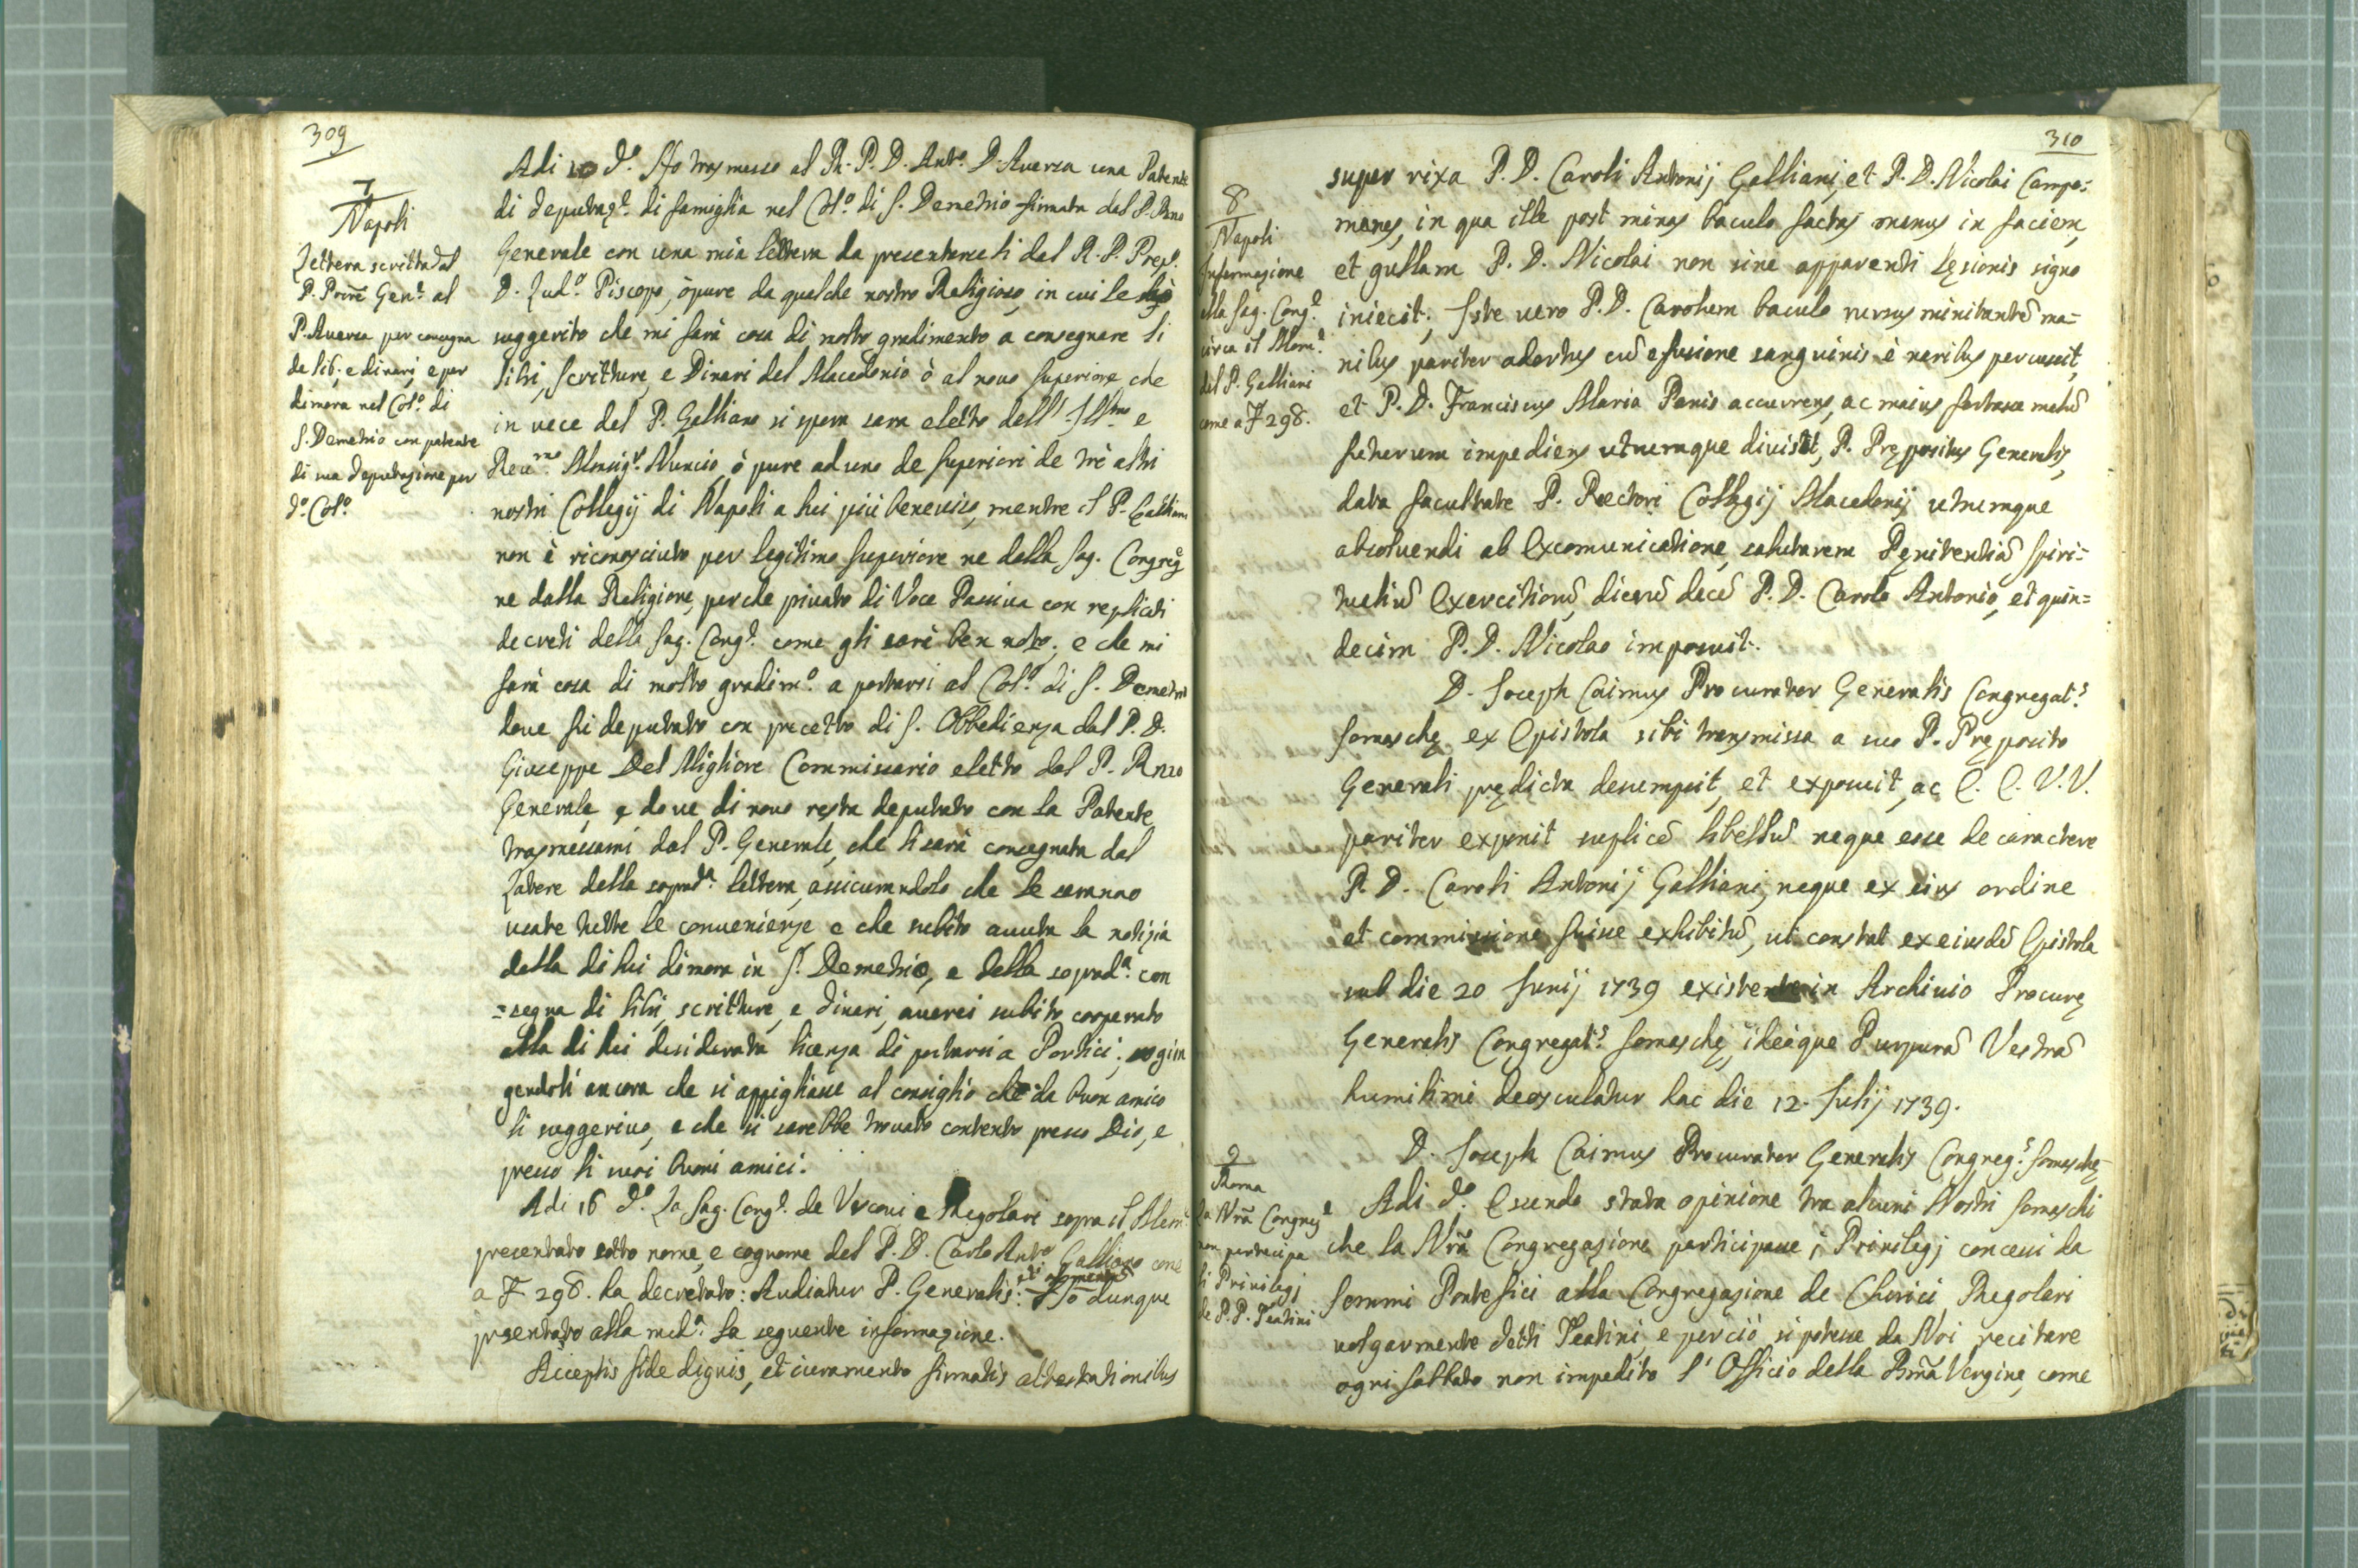 309
7
Napoli
Lettera scritta dal
P. Pñre Gen.e al
P. Auersa per consegna
de lib: e dinari, e per
dimora nel Col.o di
S. Demetrio con patente
di sua deputazione per
d.o Col.o
Adi 10 d.o Ho trasmesso al R. P. D. Ant.o D'Auersa una Patente
di deputaz.e di famiglia nel Col.o di S. Demetrio firmata dal P. Rmo
Generale con una mia lettera da presentarceli dal R. P. Prep.
D. Lud.o Piscopo, ò pure da qualche nostro Religioso, in cui le
suggerito che mi sarà cosa di molto gradimento a consegnare li
libri, scritture, e Dinari del Macedonio ò al nouo superiore che
in uece del P. Galliano si spera sarà eletto dell' Ill.mo e
Reu.mo Monsig.r Nuncio, ò pure ad uno de superiori de trè altri
nostri Collegij di Napoli a lui più beneuiso, mentre il P. Galliano
non è riconosciuto per legitimo superiore ne dalla Sag. Congreg.e
ne dalla Religione, perche priuato di Voce Passiua con replicati
decreti della Sag. Cong.e come gli sarà ben noto; e che mi
sarà cosa di molto gradim.o a portarsi al Col.o di S. Demetrio
doue fù deputato con precetto di S. Obbedienza dal P. D.
Giuseppe Del Migliore Commissario eletto dal P. Rmo
Generale, e doue di nouo resta deputato con la Patente
trasmessami dal P. Generale, che li sarà consegnata dal
Latore della soprad.a lettera, assicurandolo che le saranno
usate tutte le conuenienze e che subito auuta la notizia
della di lui dimora in S. Demetrio, e della soprad.a con
=segna di libri, scritture, e dinari, auerei subito cooperato
alla di lui desiderata licenza di portarsi a Portici; sogiun
gendoli ancora che si appigliasse al consiglio che da buon amico
li suggeriuo, e che si sarebbe trouato contento presso Dio, e
presso li suoi buoni amici.
Adi 16 d.o La Sag. Cong.e de Vescoui e Regolari sopra il Mem.
presentato sotto nome, e cognome del P. D. Carlo Ant.o Galliano come
a F 298. ha decretato: Audiatur P. Generalis: Ho dunque
presentato alla med.a la seguente informazione.
Acceptis fide dignis, et iuramento firmatis attestationibus
310
8
Napoli
Informazione
alla Sag. Cong.e
circa il Mem.e
del P. Galliani
come a F 298.
super rixa P. D. Caroli Antonij Galliani, et P. D. Nicolai Campo=
manes, in qua ille post minas baculo factas manus in faciem,
et gullam P. D. Nicolai non sine apparenti lęsionis signo
iniecit; Iste uero P. D. Carolum baculo rursus minitantē ma=
nibus pariter adortus cū efusione sanguinis è naribus percussit,
et P. D. Franciscus Maria Panis accurrens, ac maius fortasse malū
futurum impediens utrumque diuisit, P. Prępositus Generalis,
data facultate P. Rectori Collegij Macedonij utrumque
absoluendi ab Excomunicatione, salutarem Pęnitentiā spiri=
tualiū Exercitiorū dierū decē P. D. Carolo Antonio, et quin=
decim P. D. Nicolao imposuit.
D. Joseph Caimus Procurator Generalis Congregat.s
Somaschę ex Epistola sibi transmissa a suo P. Pręposito
Generali prędicta desumpsit, et exposuit, ac E. E. V. V.
pariter exponit suplicē libellū neque esse de caractere
P. D. Caroli Antonij Galliani, neque ex eius ordine
et commissione fuisse exhibitū, ut constat ex eiusdē Epistola
sub die 20 Junij 1739 existente in Archiuio Procurę
Generalis Congregat.s Somaschę, ideòque Purpurā Vestrā
humilimè deosculatur hac die 12. Julij 1739.
D. Joseph Caimus Procurator Generalis Congreg.s Somaschę
9
Roma
La Nrã Congreg.e
non participa
li Priuilegj
de P.P. Teatini
Adi d.o Essendo stata opinione tra alcuni Nostri Somaschi
che la Nrã Congregazione participasse i Priuilegj concessi da
Sommi Pontefici alla Congregazione de Chierici Regolari
uolgarmente detti Teatini, e perciò si potesse da Noi recitare
ogni sabbato non impedito l' Officio della Bmã Vergine, come